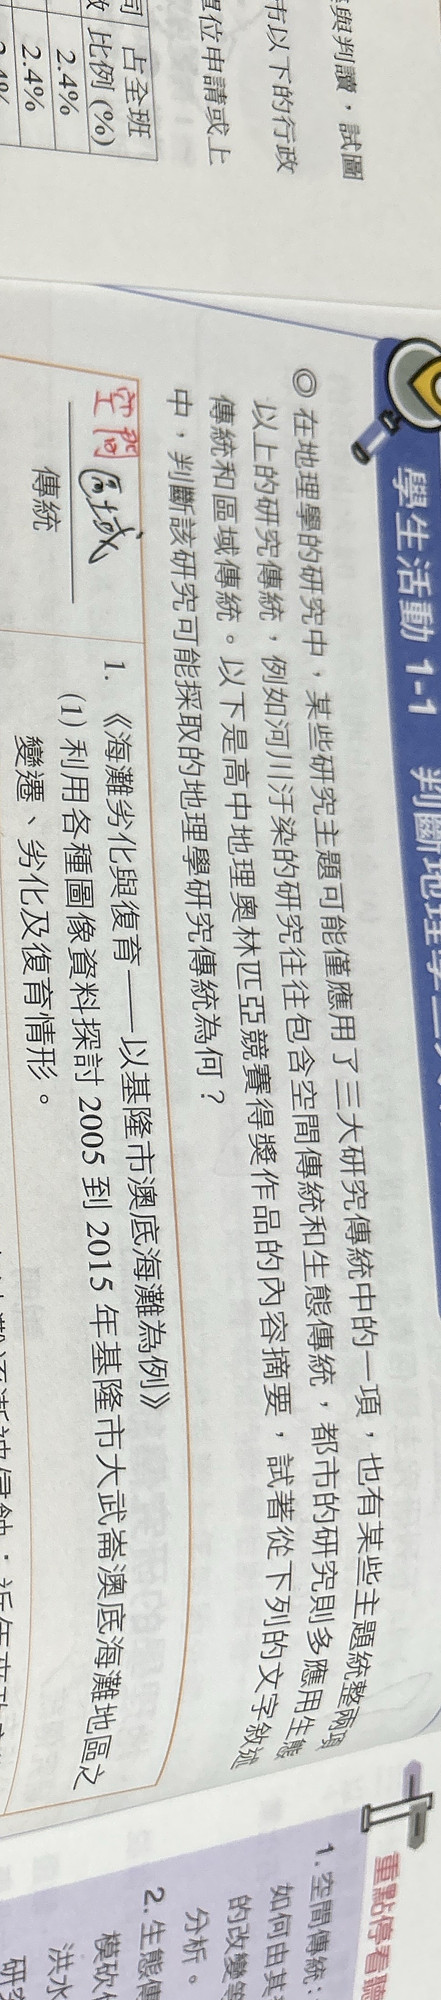 與判讀，試圖
市以下的行政
單位申請或上
占全班
比例 (%)
2.4%
2.4%
學生活動 1-1 判斷地理學三
◎ 在地理學的研究中，某些研究主題可能僅應用了三大研究傳統中的一項，也有某些主題統整兩項
以上的研究傳統，例如河川汙染的研究往往包含空間傳統和生態傳統，都市的研究則多應用生態
傳統和區域傳統。以下是高中地理奧林匹亞競賽得獎作品的內容摘要，試著從下列的文字敘述
中，判斷該研究可能採取的地理學研究傳統為何？
空間 區域
傳統
1. 《海灘劣化與復育——以基隆市澳底海灘為例》
(1) 利用各種圖像資料探討 2005 到 2015 年基隆市大武崙澳底海灘地區之
變遷、劣化及復育情形。
重點停看聽
1. 空間傳統：
如何由其
的改變等
分析。
2. 生態傳
模砍伐
洪水
研究